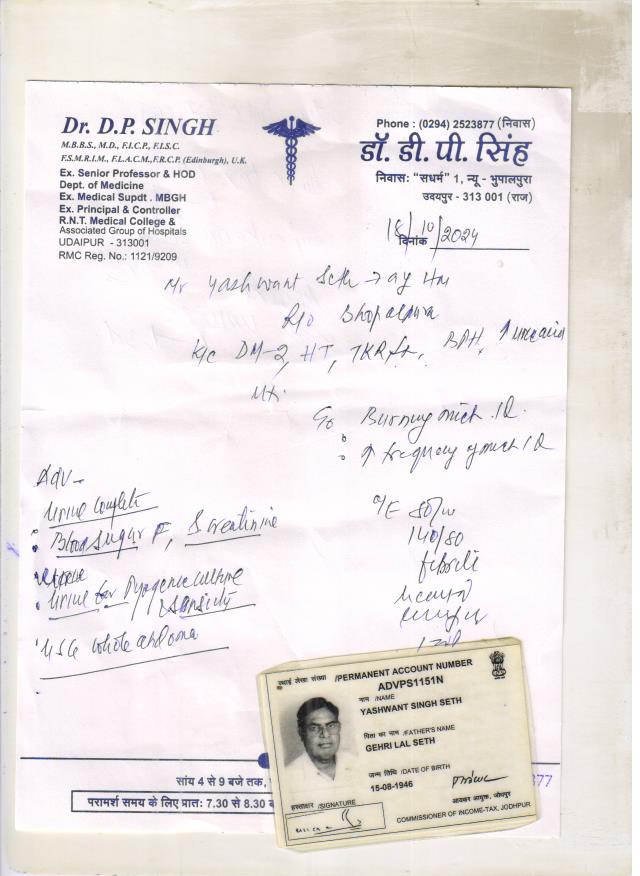 Dr. D.P. SINGH
M.B.B.S., M.D., F.I.C.P., F.I.S.C.
F.S.M.R.I.M., F.L.A.C.M., F.R.C.P. (Edinburgh), U.K.
Ex. Senior Professor & HOD
Dept. of Medicine
Ex. Medical Supdt . MBGH
Ex. Principal & Controller
R.N.T. Medical College &
Associated Group of Hospitals
UDAIPUR - 313001
RMC Reg. No.: 1121/9209
Phone : (0294) 2523877 (निवास)
डॉ. डी. पी. सिंह
निवास: "सधर्म" 1, न्यू - भुपालपुरा
उदयपुर - 313 001 (राज)
दिनांक 18/10/2024
Mr Yashwant Seth
R/o Bhopalpura
K/c DM-2, HT, TKR, BPH,
C/o Burning mict.
↑ frequency
Adv-
Urine Complete
Blood Sugar F, S Creatinine
Urine for Pyogenic culture
& Sensivity
USG whole abdomen
O/E 80/m
140/80
सांय 4 से 9 बजे तक,
परामर्श समय के लिए प्रात: 7.30 से 8.30 ब
स्थाई लेखा संख्या /PERMANENT ACCOUNT NUMBER
ADVPS1151N
नाम /NAME
YASHWANT SINGH SETH
पिता का नाम /FATHER'S NAME
GEHRI LAL SETH
जन्म तिथि /DATE OF BIRTH
15-08-1946
हस्ताक्षर /SIGNATURE
आयकर आयुक्त, जोधपुर
COMMISSIONER OF INCOME-TAX, JODHPUR